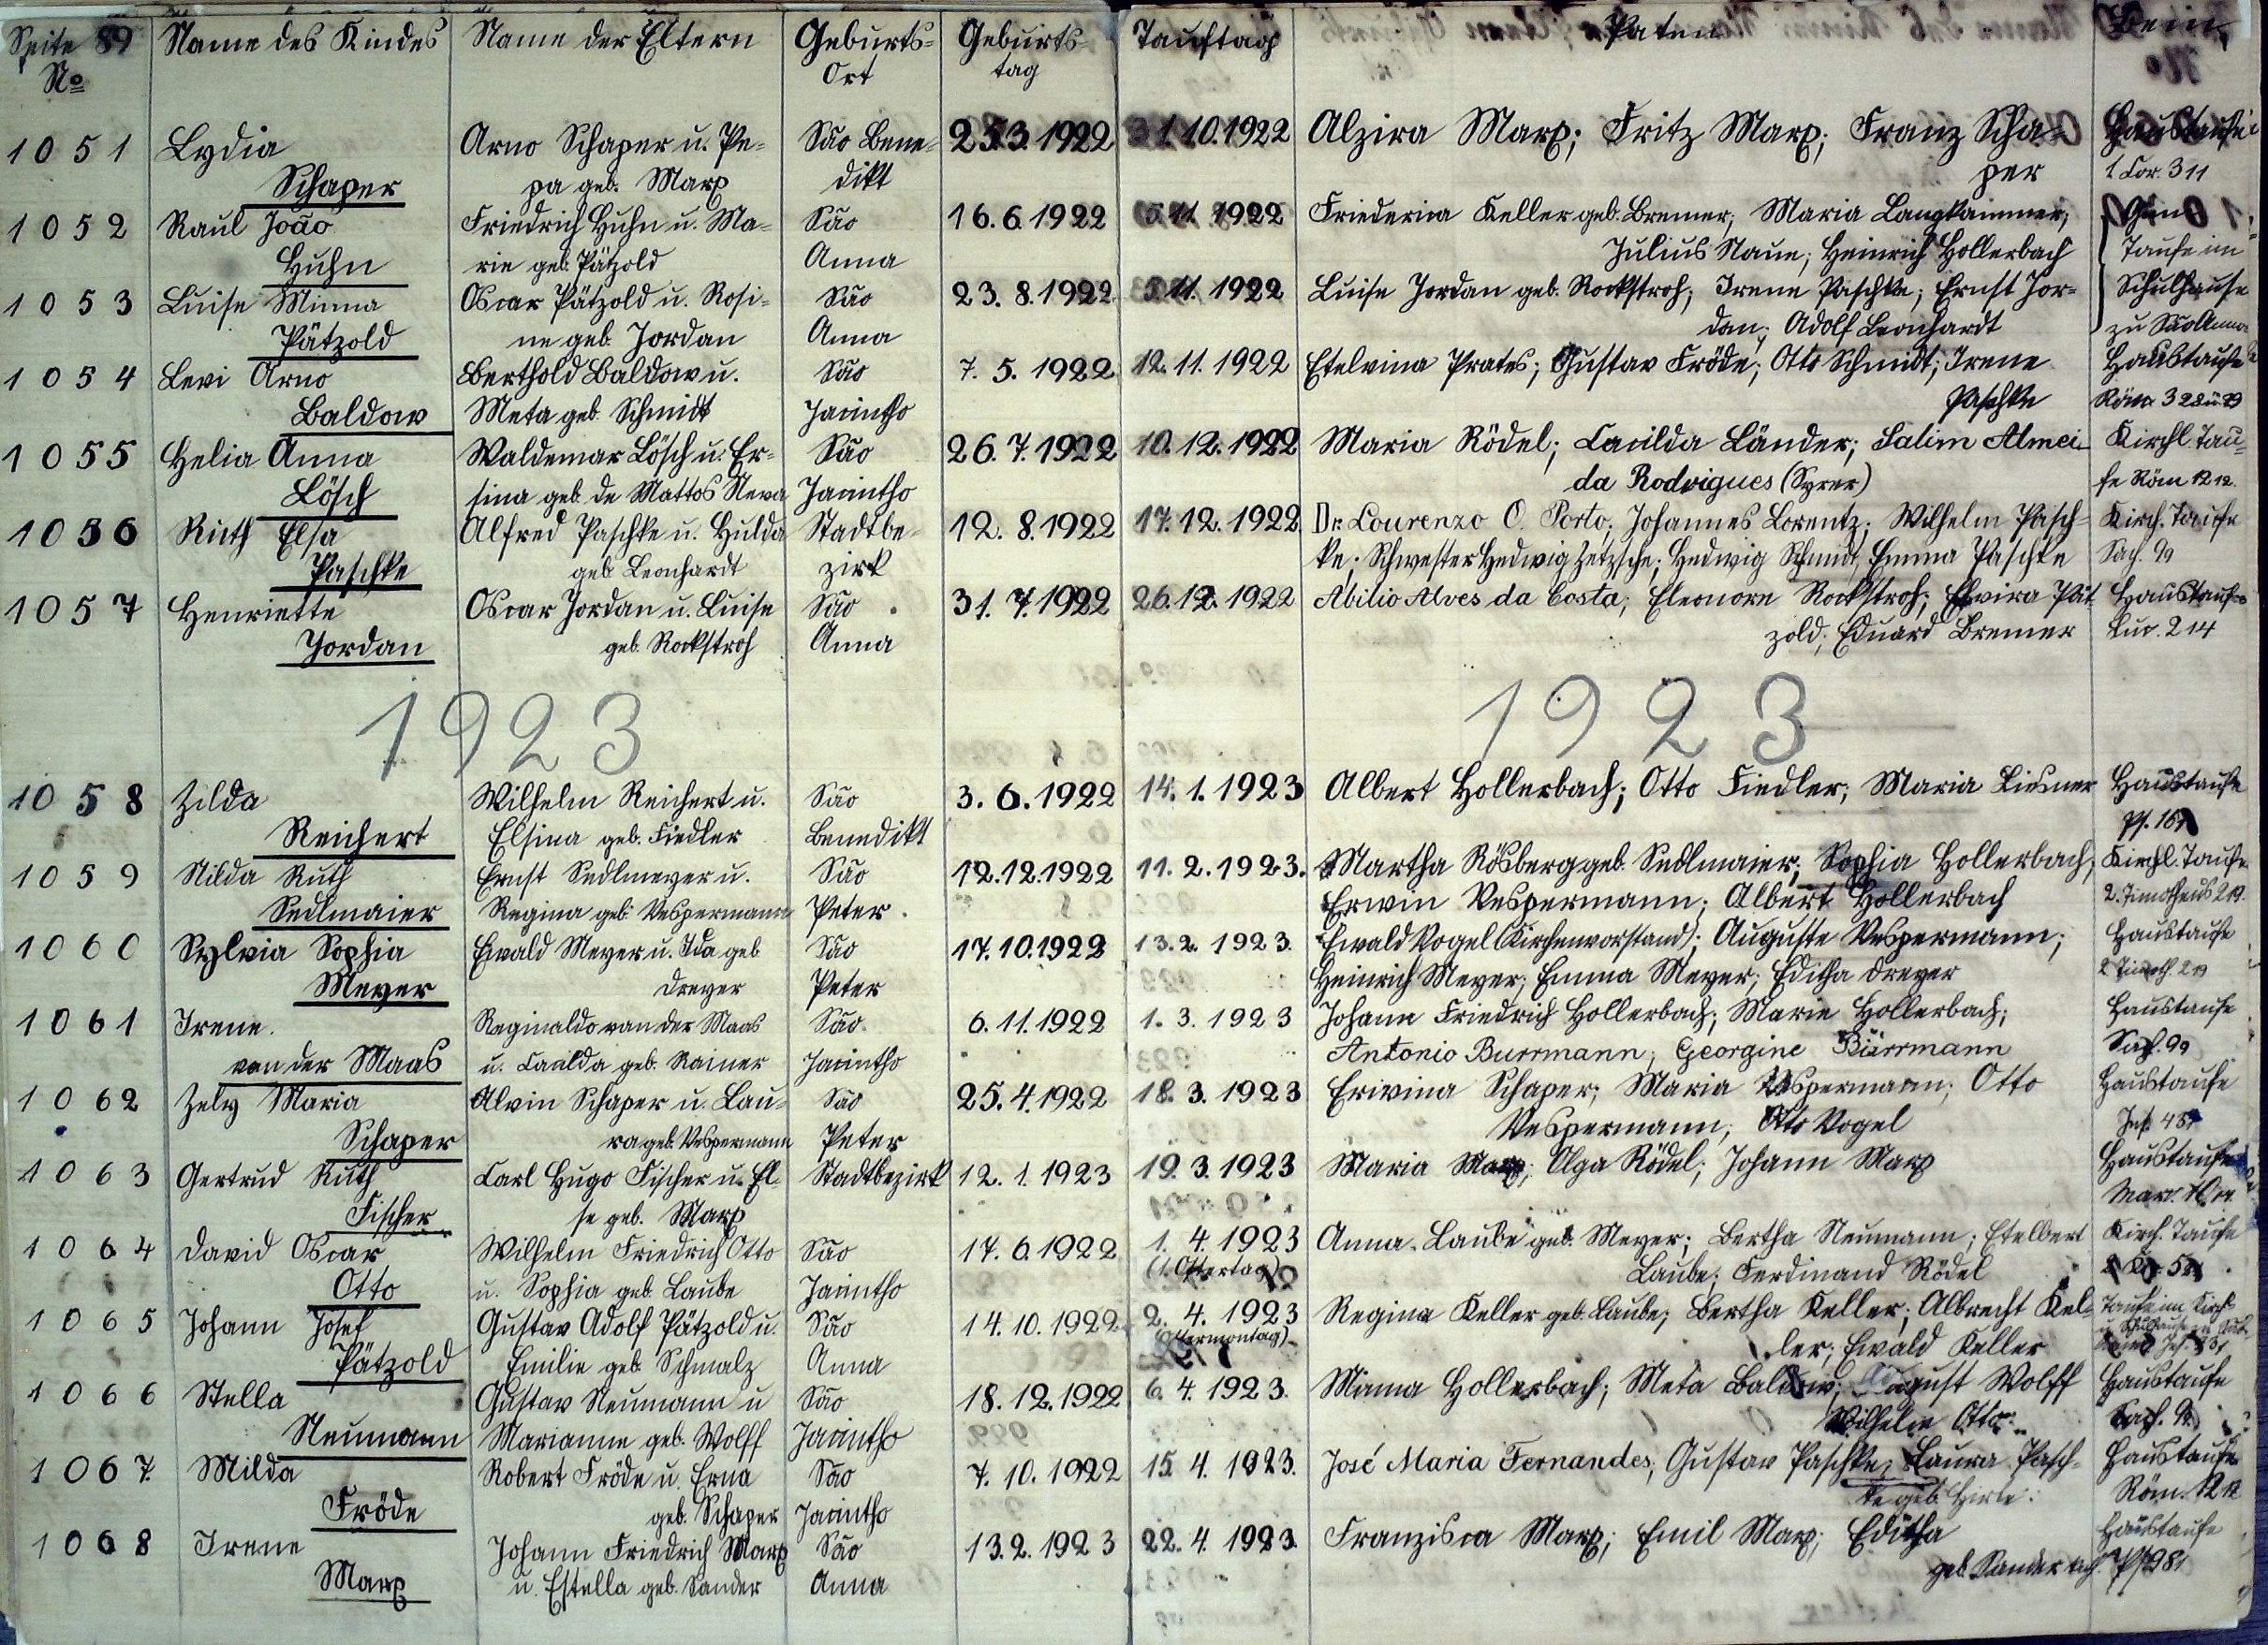 Seite 89 Name des Kindes Name der Eltern Geburts- Geburts- Tauftag Paten Bem.
No Ort tag
1051 Lydia Arno Schaper u. Pe- São Bene- 25.3.1922 1.10.1922 Alzira Marx; Fritz Marx; Franz Scha- Haustaufe
Schaper pa geb. Marx dikt per 1. Cor. 3 11
1052 Raul João Friedrich Huhn u. Ma- São 16.6.1922 5.11.1922 Friederica Keller geb. Bremer; Maria Langkammer;
Huhn rie geb. Pätzold Anna Julius Naue; Heinrich Hollerbach Taufe im
1053 Luise Minna Oscar Pätzold u. Rosi- São 23.8.1922 5.11.1922 Luise Jordan geb. Rockstroh; Irene Paschke; Ernst Jor- Schulhause
Pätzold ne geb. Jordan Anna dan; Adolf Leonhardt zu São Anna
1054 Levi Arno Berthold Baldow u. São 7.5.1922 12.11.1922 Etelvina Prates; Gustav Fröde; Otto Schmidt; Irene Haustaufe
Baldow Meta geb. Schmidt Jacintho Paschke Röm 3 28 u 29
1055 Helia Anna Waldemar Lösch u. Er- São 26.7.1922 10.12.1922 Maria Rödel; Cacilda Länder; Salim Almei- Kirchl. Tau-
Lösch sina geb. de Mattos Neva Jacintho da Rodrigues (Syrer) fe Röm 12 12.
1056 Ruth Elsa Alfred Paschke u. Hulda Stadtbe- 12.8.1922 17.12.1922 Dr. Lourenzo O. Porto; Johannes Lorentz; Wilhelm Pasch- Kirch. Taufe
Paschke geb. Leonhardt zirk ke; Schwester Hedwig Zetzsche; Hedwig Schmidt, Emma Paschke Sach. 99
1057 Henriette Oscar Jordan u. Luise São 31.7.1922 26.12.1922 Abilio Alves da Costa; Eleonore Rockstroh; Elvira Pät Haustaufe
Jordan geb. Rockstroh Anna zold; Eduard Bremer Luc. 2 14
1923 1923
1058 Zilda Wilhelm Reichert u. São 3.6.1922 14.1.1923 Albert Hollerbach; Otto Fiedler; Maria Liesner Haustaufe
Reichert Elsina geb. Fiedler Benedikt Ps. 16
1059 Nilda Ruth Ernst Sedlmeyer u. São 12.12.1922 11.2.1923. Martha Rösberg geb. Sedlmaier; Sophia Hollerbach; Kirchl. Taufe
Sedlmaier Regina geb. Vespermann Peter. Erwin Vespermann; Albert Hollerbach 2. Timotheus 2 19.
1060 Sylvia Sophia Ewald Meyer u. Ida geb São 17.10.1922 13.2.1923. Ewald Vogel (Kirchenvorstand); Auguste Vespermann; Haustaufe
Meyer Dreyer Peter Heinrich Meyer; Emma Meyer; Editha Dreyer 2 Timoth 2 19
1061 Irene. Reginaldo van der Maas São 6.11.1922 1.3.1923 Johann Friedrich Hollerbach; Marie Hollerbach; Haustaufe
van der Maas u. Cacilda geb. Rainer Jacintho Antonio Burrmann; Georgine Bürrmann Sach. 99
1062 Zely Maria Alvin Schaper u. Lau- São 25.4.1922 18.3.1923 Erivina Schaper; Maria Vespermann; Otto Haustaufe
Schaper ra geb. Vespermann Peter Vespermann; Otto Vogel
1063 Gertrud Ruth Carl Hugo Fischer u. El- Stadtbezirk 12.1.1923 19.3.1923 Maria Marx; Olga Rödel; Johann Marx Haustaufe
Fischer se geb. Marx Marc. 10 14
1064 David Oscar Wilhelm Friedrich Otto São 17.6.1922 1.4.1923 Anna Laube geb. Meyer; Bertha Neumann; Etelbert Kirch. Taufe
Otto u. Sophia geb. Laube Jacintho (1. Ostertag) Laube; Ferdinand Rödel
1065 Johann Josef Gustav Adolf Pätzold u. São 14.10.1922 2.4.1923 Regina Keller geb. Laube; Bertha Keller; Albrecht Kel- Taufe im Kirch-
Pätzold Emilie geb. Schmalz Anna (Ostermontag) ler; Ewald Keller
1066 Stella Gustav Neumann u São 18.12.1922 6.4.1923. Minna Hollerbach; Meta Baldow; August Wolff Haustaufe
Neumann Marianne geb. Wolff Jacintho Wilhelm Otto Sach. 9
1067. Milda Robert Fröde u. Erna São 7.10.1922 15.4.1923. José Maria Fernandes; Gustav Paschke, Laura Pasch- Haustaufe
Fröde geb. Schaper Jacintho ke geb. Hirle. Röm. 12 12
1068 Irene Johann Friedrich Marx São 13.2.1923 22.4.1923. Franzisca Marx; Emil Marx; Editha Haustaufe
Marx u. Estella geb. Sander Anna geb. Sander Ps. 98 1